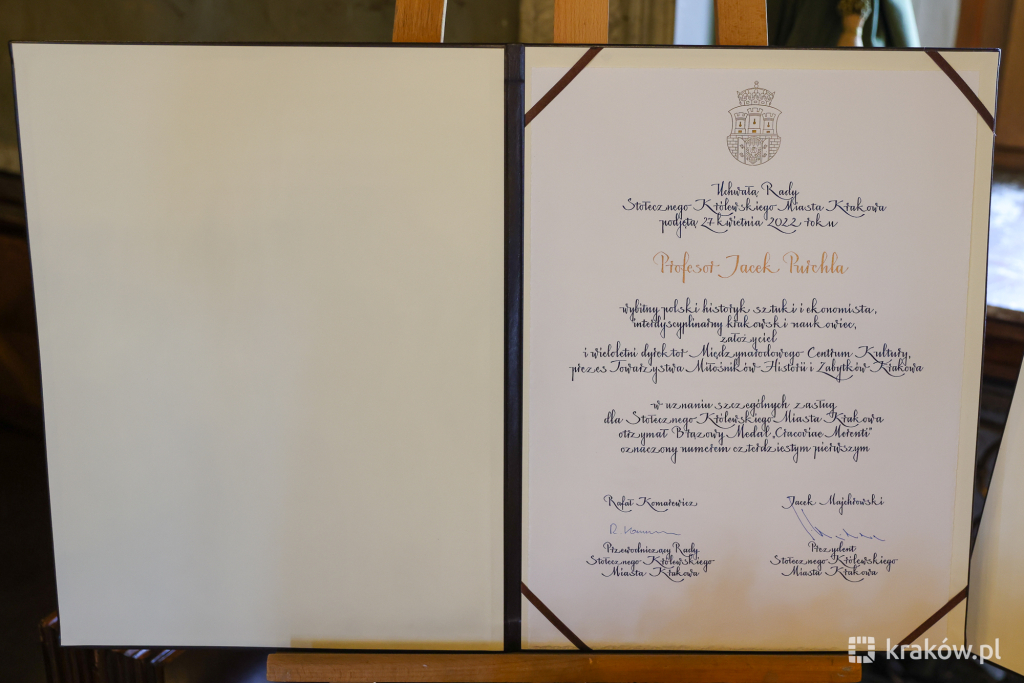 Uchwałą Rady
Stołecznego Królewskiego Miasta Krakowa
podjętą 27 kwietnia 2022 roku
Profesor Jacek Purchla
wybitny polski historyk sztuki i ekonomista,
interdyscyplinarny krakowski naukowiec,
założyciel
i wieloletni dyrektor Międzynarodowego Centrum Kultury,
prezes Towarzystwa Miłośników Historii i Zabytków Krakowa
w uznaniu szczególnych zasług
dla Stołecznego Królewskiego Miasta Krakowa
otrzymał Brązowy Medal „Cracoviae Merenti”
oznaczony numerem czterdziestym pierwszym
Rafał Komarewicz
Jacek Majchrowski
Przewodniczący Rady
Stołecznego Królewskiego
Miasta Krakowa
Prezydent
Stołecznego Królewskiego
Miasta Krakowa
kraków.pl